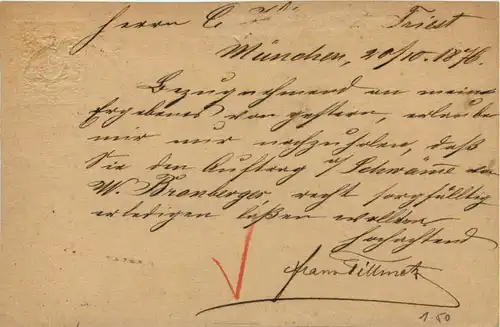 Herrn C. Triest
München, 20/10. 1876.
Bezugnehmend an mein
Ergebenes von gestern, erlaube
mir nur nachzuholen, daß
Sie den Auftrag a/ Schwämme
W. Bromberger recht sorgfältig
erledigen laßen wollten
hochachtend
Franz Fillmetz
1.50